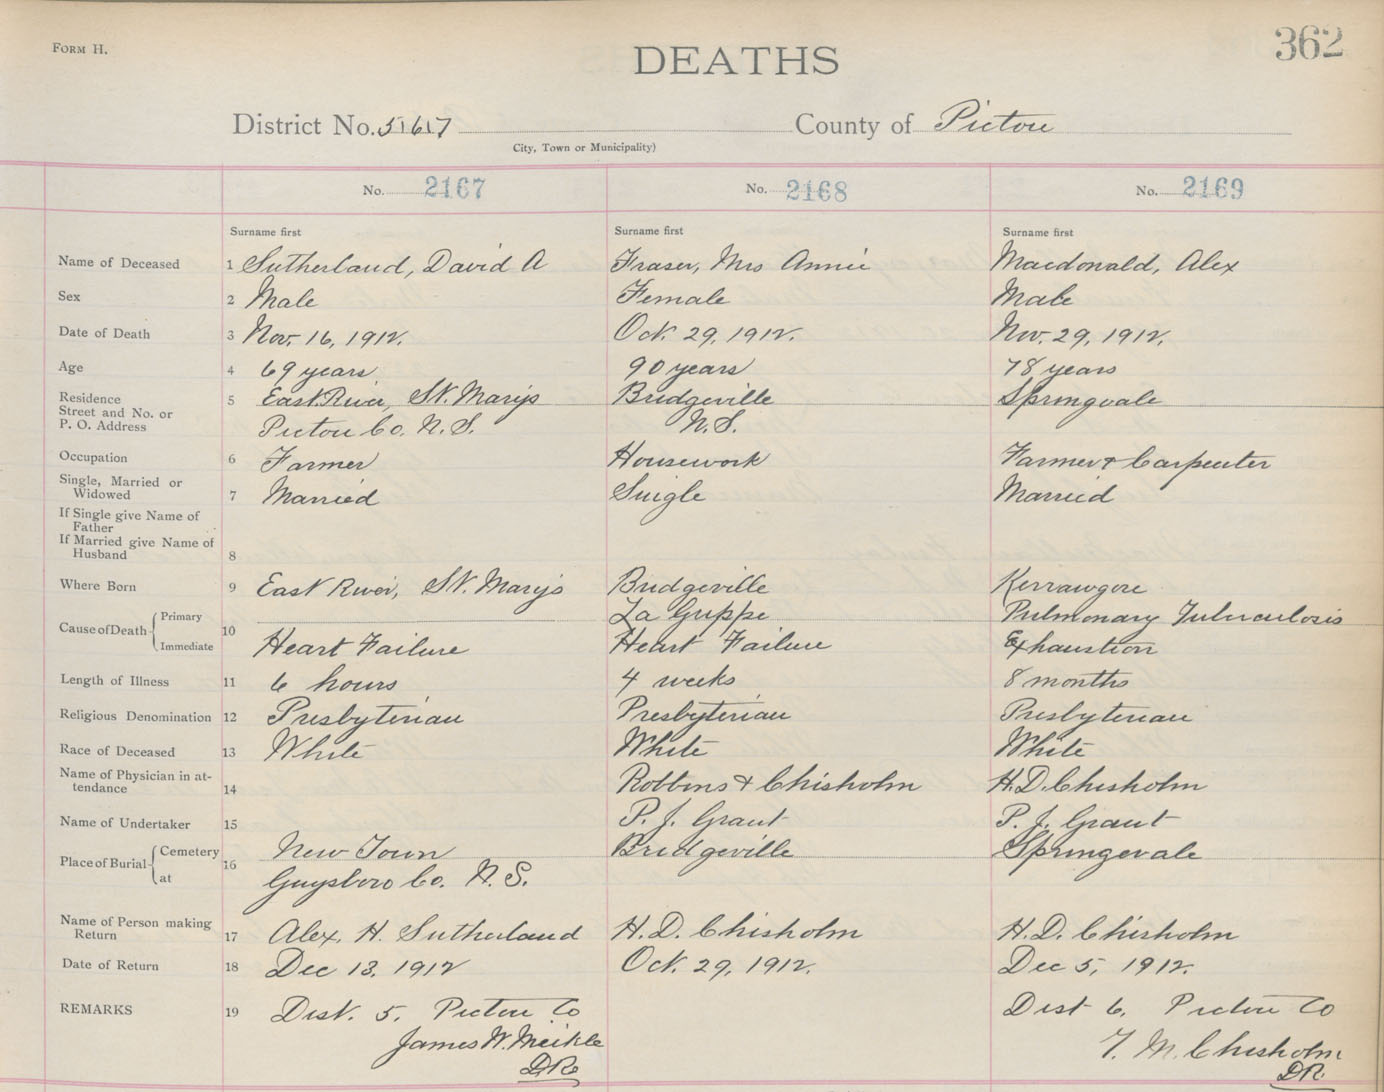 FORM H.
362
DEATHS
District No. 5167 County of Pictou
City, Town or Municipality)
No. 2167 No. 2168 No. 2169
Surname first Surname first Surname first
Name of Deceased 1 Sutherland, David A Fraser, Mrs Annie Macdonald, Alex
Sex 2 Male Female Male
Date of Death 3 Nov. 16, 1912. Oct. 29, 1912. Nov. 29, 1912.
Age 4 69 years 90 years 78 years
Residence 5 East River, St. Marys Bridgeville Springvale
Street and No. or
P. O. Address Pictou Co. N. S. N. S.
Occupation 6 Farmer Housework Farmer & Carpenter
Single, Married or
Widowed 7 Married Single Married
If Single give Name of
Father
If Married give Name of
Husband 8
Where Born 9 East River, St. Marys Bridgeville Kerrowgore
Primary La Grippe Pulmonary Tuberculosis
Cause of Death 10
Immediate Heart Failure Heart Failure Exhaustion
Length of Illness 11 6 hours 4 weeks 8 months
Religious Denomination 12 Presbyterian Presbyterian Presbyterian
Race of Deceased 13 White White White
Name of Physician in at-
tendance 14 Robbins & Chisholm H. D. Chisholm
Name of Undertaker 15 P. J. Grant P. J. Grant
Cemetery New Town Bridgeville Springevale
Place of Burial 16
at Guysboro Co. N. S.
Name of Person making
Return 17 Alex. H. Sutherland H. D. Chisholm H. D. Chisholm
Date of Return 18 Dec 13. 1912 Oct. 29, 1912. Dec 5, 1912.
REMARKS 19 Dist. 5. Pictou Co Dist 6. Pictou Co
James W. Meikle T. M. Chisholm
D.R. D.R.